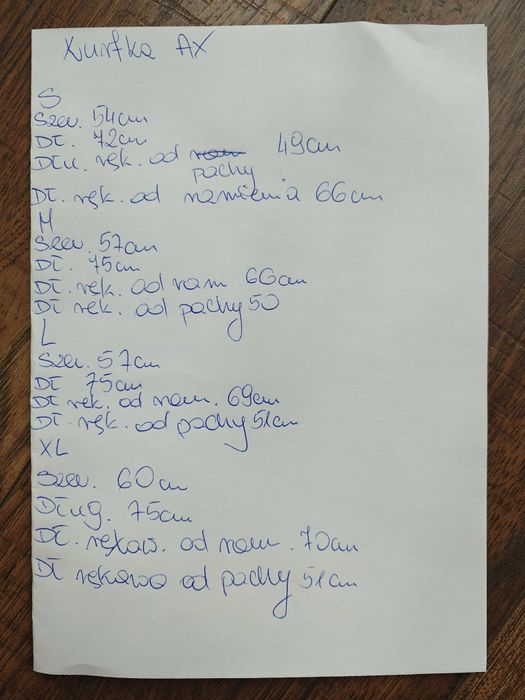 Kurtka AX
S
Szer. 54cm
Dł. 72cm
Dłu. ręk. od ram 49cm
pachy
Dł. ręk. od ramienia 66cm
M
Szer. 57cm
Dł. 75cm
Dł. ręk. od ram 66cm
Dł ręk. od pachy 50
L
Szer. 57cm
Dł 75cm
Dł ręk. od ram. 69cm
Dł. ręk. od pachy 51cm
XL
Szer. 60cm
Dług. 75cm
Dł. rękaw. od ram. 70cm
Dł rękawa od pachy 51cm